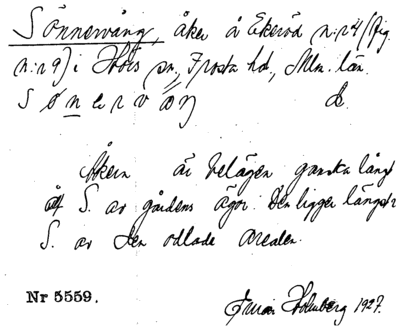 Sönnervång, åker å Ekeröd n:r 4 (fig.
n:r 9) i Höörs sn, Frosta hd, Mlm. län.
Åkern är belägen ganska långt
åt S. av gårdens ägor. Den ligger längst
S. av den odlade arealen.
Nr 5559.
Holmberg 1927.